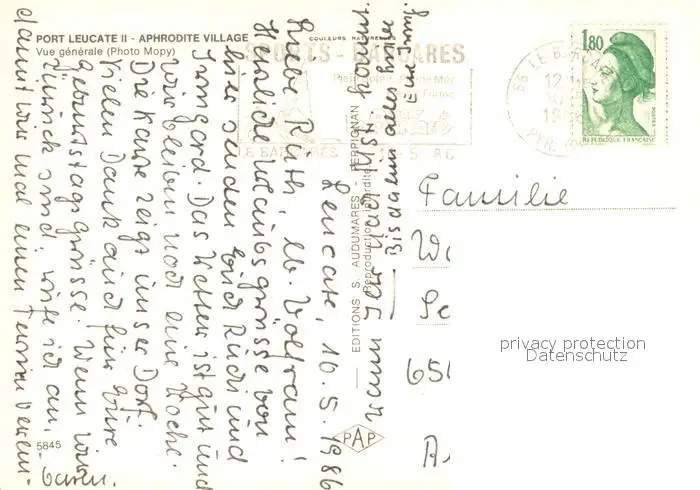 PORT LEUCATE II - APHRODITE VILLAGE
Vue générale (Photo Mopy)
COULEURS NATURELLES
SPORTS - BARCARES
LE BARCARES
5. 86
66 LE BARCARES
12
PYR.
1,80
POSTES
REPUBLIQUE FRANÇAISE
EDITIONS S. AUDUMARES - PERPIGNAN
Reproduction interdite
PAP
5845
Leucate, 10.5.1986
Liebe Ruth, lb. Wolfram!
Herzliche Urlaubsgrüsse von
hier senden Euch Rudi und
Irmgard. Das Wetter ist gut und
wir bleiben noch eine Woche.
Die Karte zeigt unser Dorf.
Vielen Dank auch für Eure
Geburtstagsgrüsse. Wenn wir
zurück sind, rufe ich an,
damit wir mal einen Termin verein-
baren.
wann
Bis dahin alles Gute
Eure Irmg.
Familie
privacy protection
Datenschutz